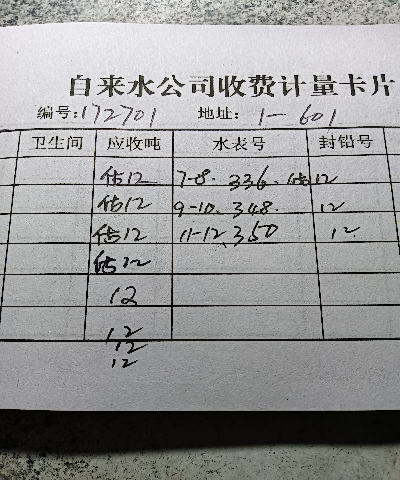 自来水公司收费计量卡片
编号:172701 地址: 1-601
卫生间 应收吨 水表号 封铅号
估12 7-8. 336. 估12
估12 9-10. 348. 12
估12 11-12. 350 12
估12
12
12
12
12